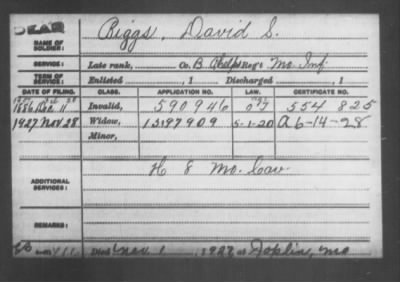 DEAD
NAME OF SOLDIER: Biggs, David S.
SERVICE: Late rank, Co. B Phelps Reg't Mo. Inf.
TERM OF SERVICE: Enlisted , 1 Discharged , 1
DATE OF FILING. CLASS. APPLICATION NO. LAW. CERTIFICATE NO.
1886 Dec 11 Invalid, 590946 554 825
1927 Nov 28 Widow, 1597909 5-1-20 A 6-14-28
Minor,
ADDITIONAL SERVICES: H 8 Mo. Cav.
REMARKS:
Died Nov 1, 1927 at Joplin, Mo